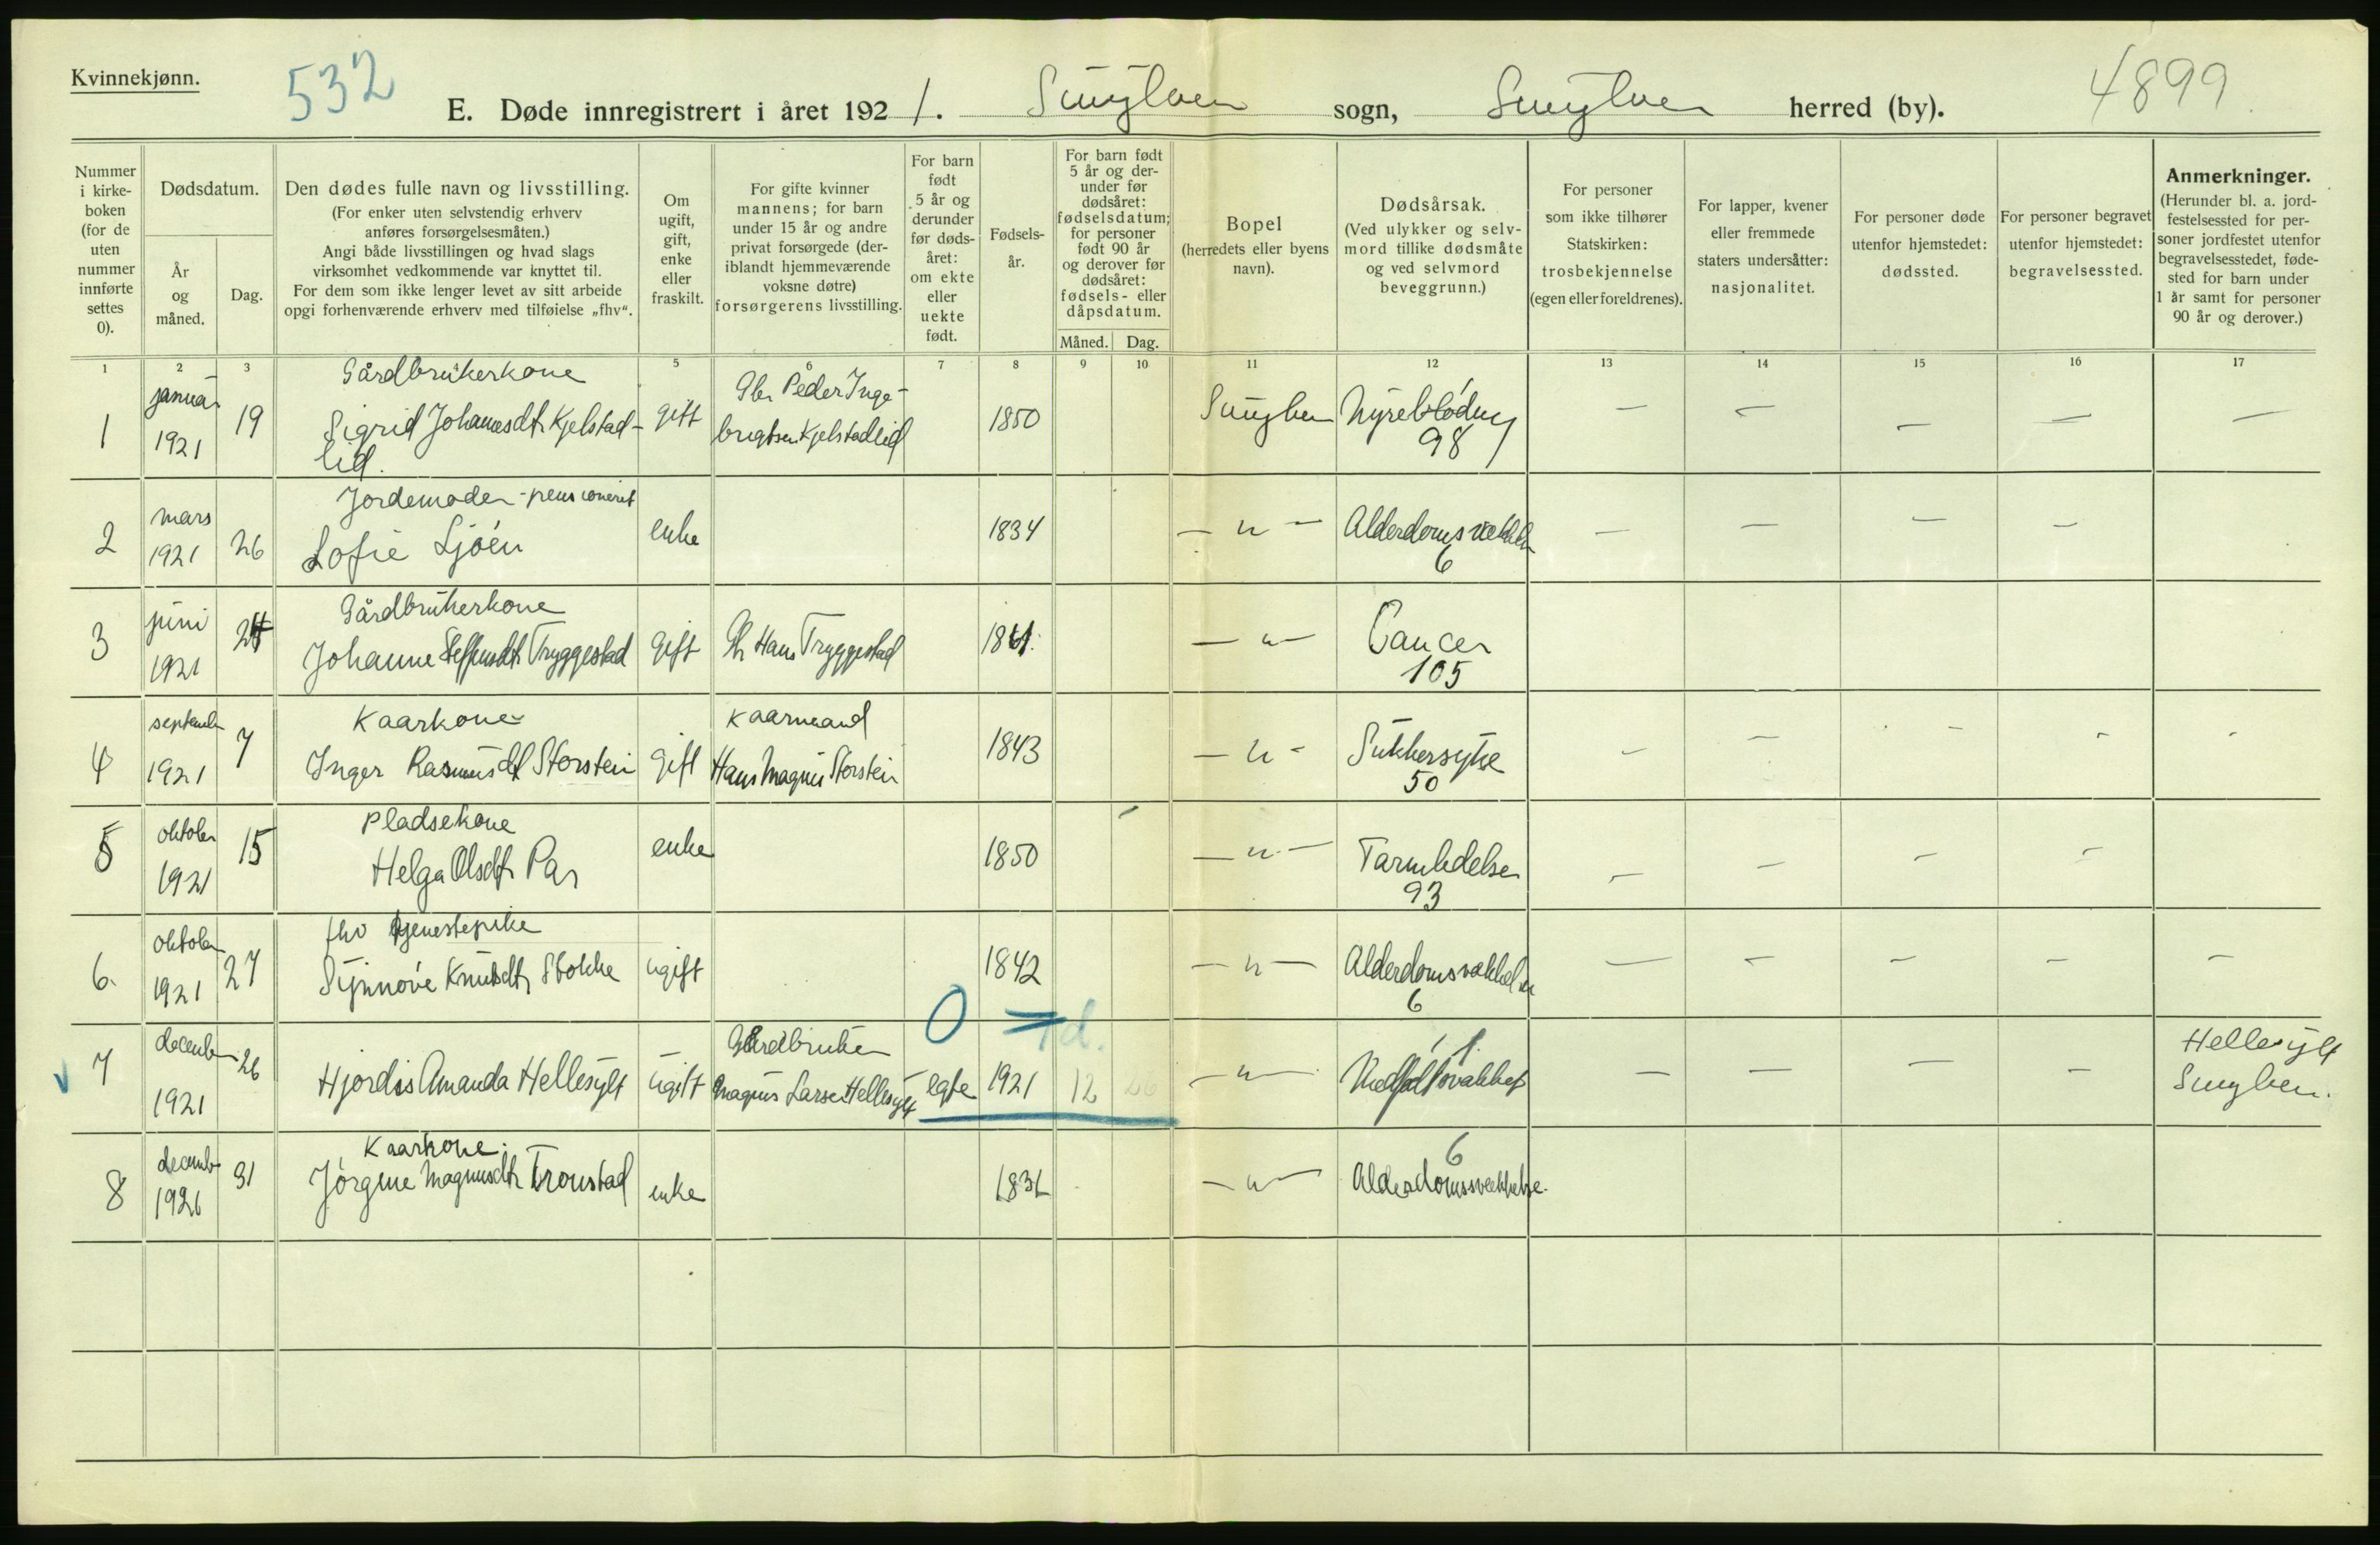 Kvinnekjønn.
532
4899
E. Døde innregistrert i året 1921. Sunylven sogn, Sunylven herred (by).
Nummer i kirkeboken (for de uten nummer innførte settes 0).
Dødsdatum.
År og måned.
Dag.
Den dødes fulle navn og livsstilling.
(For enker uten selvstendig erhverv
anføres forsørgelsesmåten.)
Angi både livsstillingen og hvad slags
virksomhet vedkommende var knyttet til.
For dem som ikke lenger levet av sitt arbeide
opgi forhenværende erhverv med tilføielse „fhv“.
Om ugift, gift, enke eller fraskilt.
For gifte kvinner
mannens; for barn
under 15 år og andre
privat forsørgede (der-
iblandt hjemmeværende
voksne døtre)
forsørgerens livsstilling.
For barn født 5 år og derunder før dødsåret: om ekte eller uekte født.
Fødsels-
år.
For barn født
5 år og der-
under før
dødsåret:
fødselsdatum;
for personer
født 90 år
og derover før
dødsåret:
fødsels- eller
dåpsdatum.
Måned. Dag.
Bopel
(herredets eller byens
navn).
Dødsårsak.
(Ved ulykker og selv-
mord tillike dødsmåte
og ved selvmord
beveggrunn.)
For personer
som ikke tilhører
Statskirken:
trosbekjennelse
(egen eller foreldrenes).
For lapper, kvener
eller fremmede
staters undersåtter:
nasjonalitet.
For personer døde
utenfor hjemstedet:
dødssted.
For personer begravet
utenfor hjemstedet:
begravelsessted.
Anmerkninger.
(Herunder bl. a. jord-
festelsessted for per-
soner jordfestet utenfor
begravelsesstedet, føde-
sted for barn under
1 år samt for personer
90 år og derover.)
1 2 3 5 6 7 8 9 10 11 12 13 14 15 16 17
1 januar 1921 19 Gårdbrukerkone Sigrid Johannesdtr Kjelstad-lid. gift Gbr Peder Inge-brigtsen Kjelstadlid 1850 Sunylven Nyreblødning 98 — — — — —
2 mars 1921 26 Jordemoder - pensioneret Sofie Ljøen enke 1834 — " — Alderdomsvækkelse 6 — — — —
3 juni 1921 24 Gårdbrukerkone Johanne Steffensdtr Tryggestad gift Gbr Hans Tryggestad — " — Cancer 105
4 september 1921 7 Kaarkone Inger Rasmusdtr Storstein gift Kaarmand Hans Magnus Storstein 1843 — " — Sukkersyke 50 — — - - -
5 oktober 1921 15 Pladsekone Helga Olsdtr enke 1850 — " — Tarmlidelse 93 — — — —
6. oktober 1921 27 fhv tjenestepike Synnøve Knutsdtr Stokke ugift 1842 — " — Alderdomsvækkelse 6 — — — — —
0 1 d.
7 december 1921 26 Hjordis Amanda Hellesylt ugift Gårdbruker Magnus Larsen Hellesylt egte 1921 12 26 — " — 1. Medfødt svakhet — — — — Hellesylt Sunylven.
8 december 1921 31 Kaarkone. Jørgine Magnusdtr Tronstad enke 1831 — " — 6 Alderdomssvækkelse.